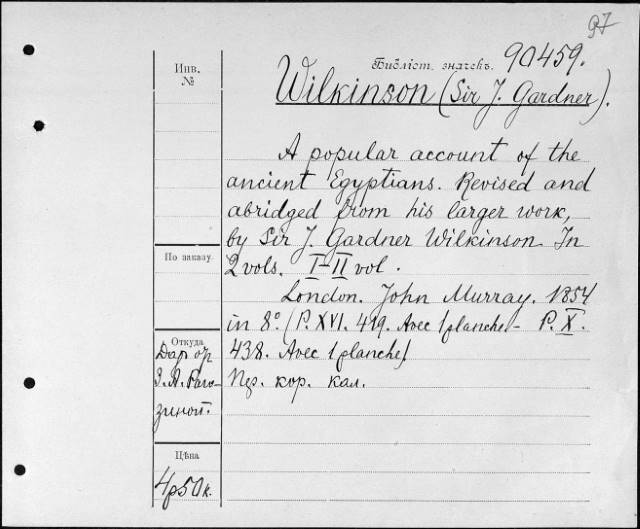 97
Инв.
№
Библіот. значекъ. 90459.
Wilkinson (Sir J. Gardner).
A popular account of the
ancient Egyptians. Revised and
abridged from his larger work,
by Sir J. Gardner Wilkinson In
2 vols. I-II vol.
London. John Murray. 1854
in 8º. (P. XVI. 419. Avec 1 planche - P. X.
438. Avec 1 planche)
Пер. кор. кал.
По заказу.
Откуда
Дар от
З. А. Раго-
зиной.
Цѣна
4р50к.